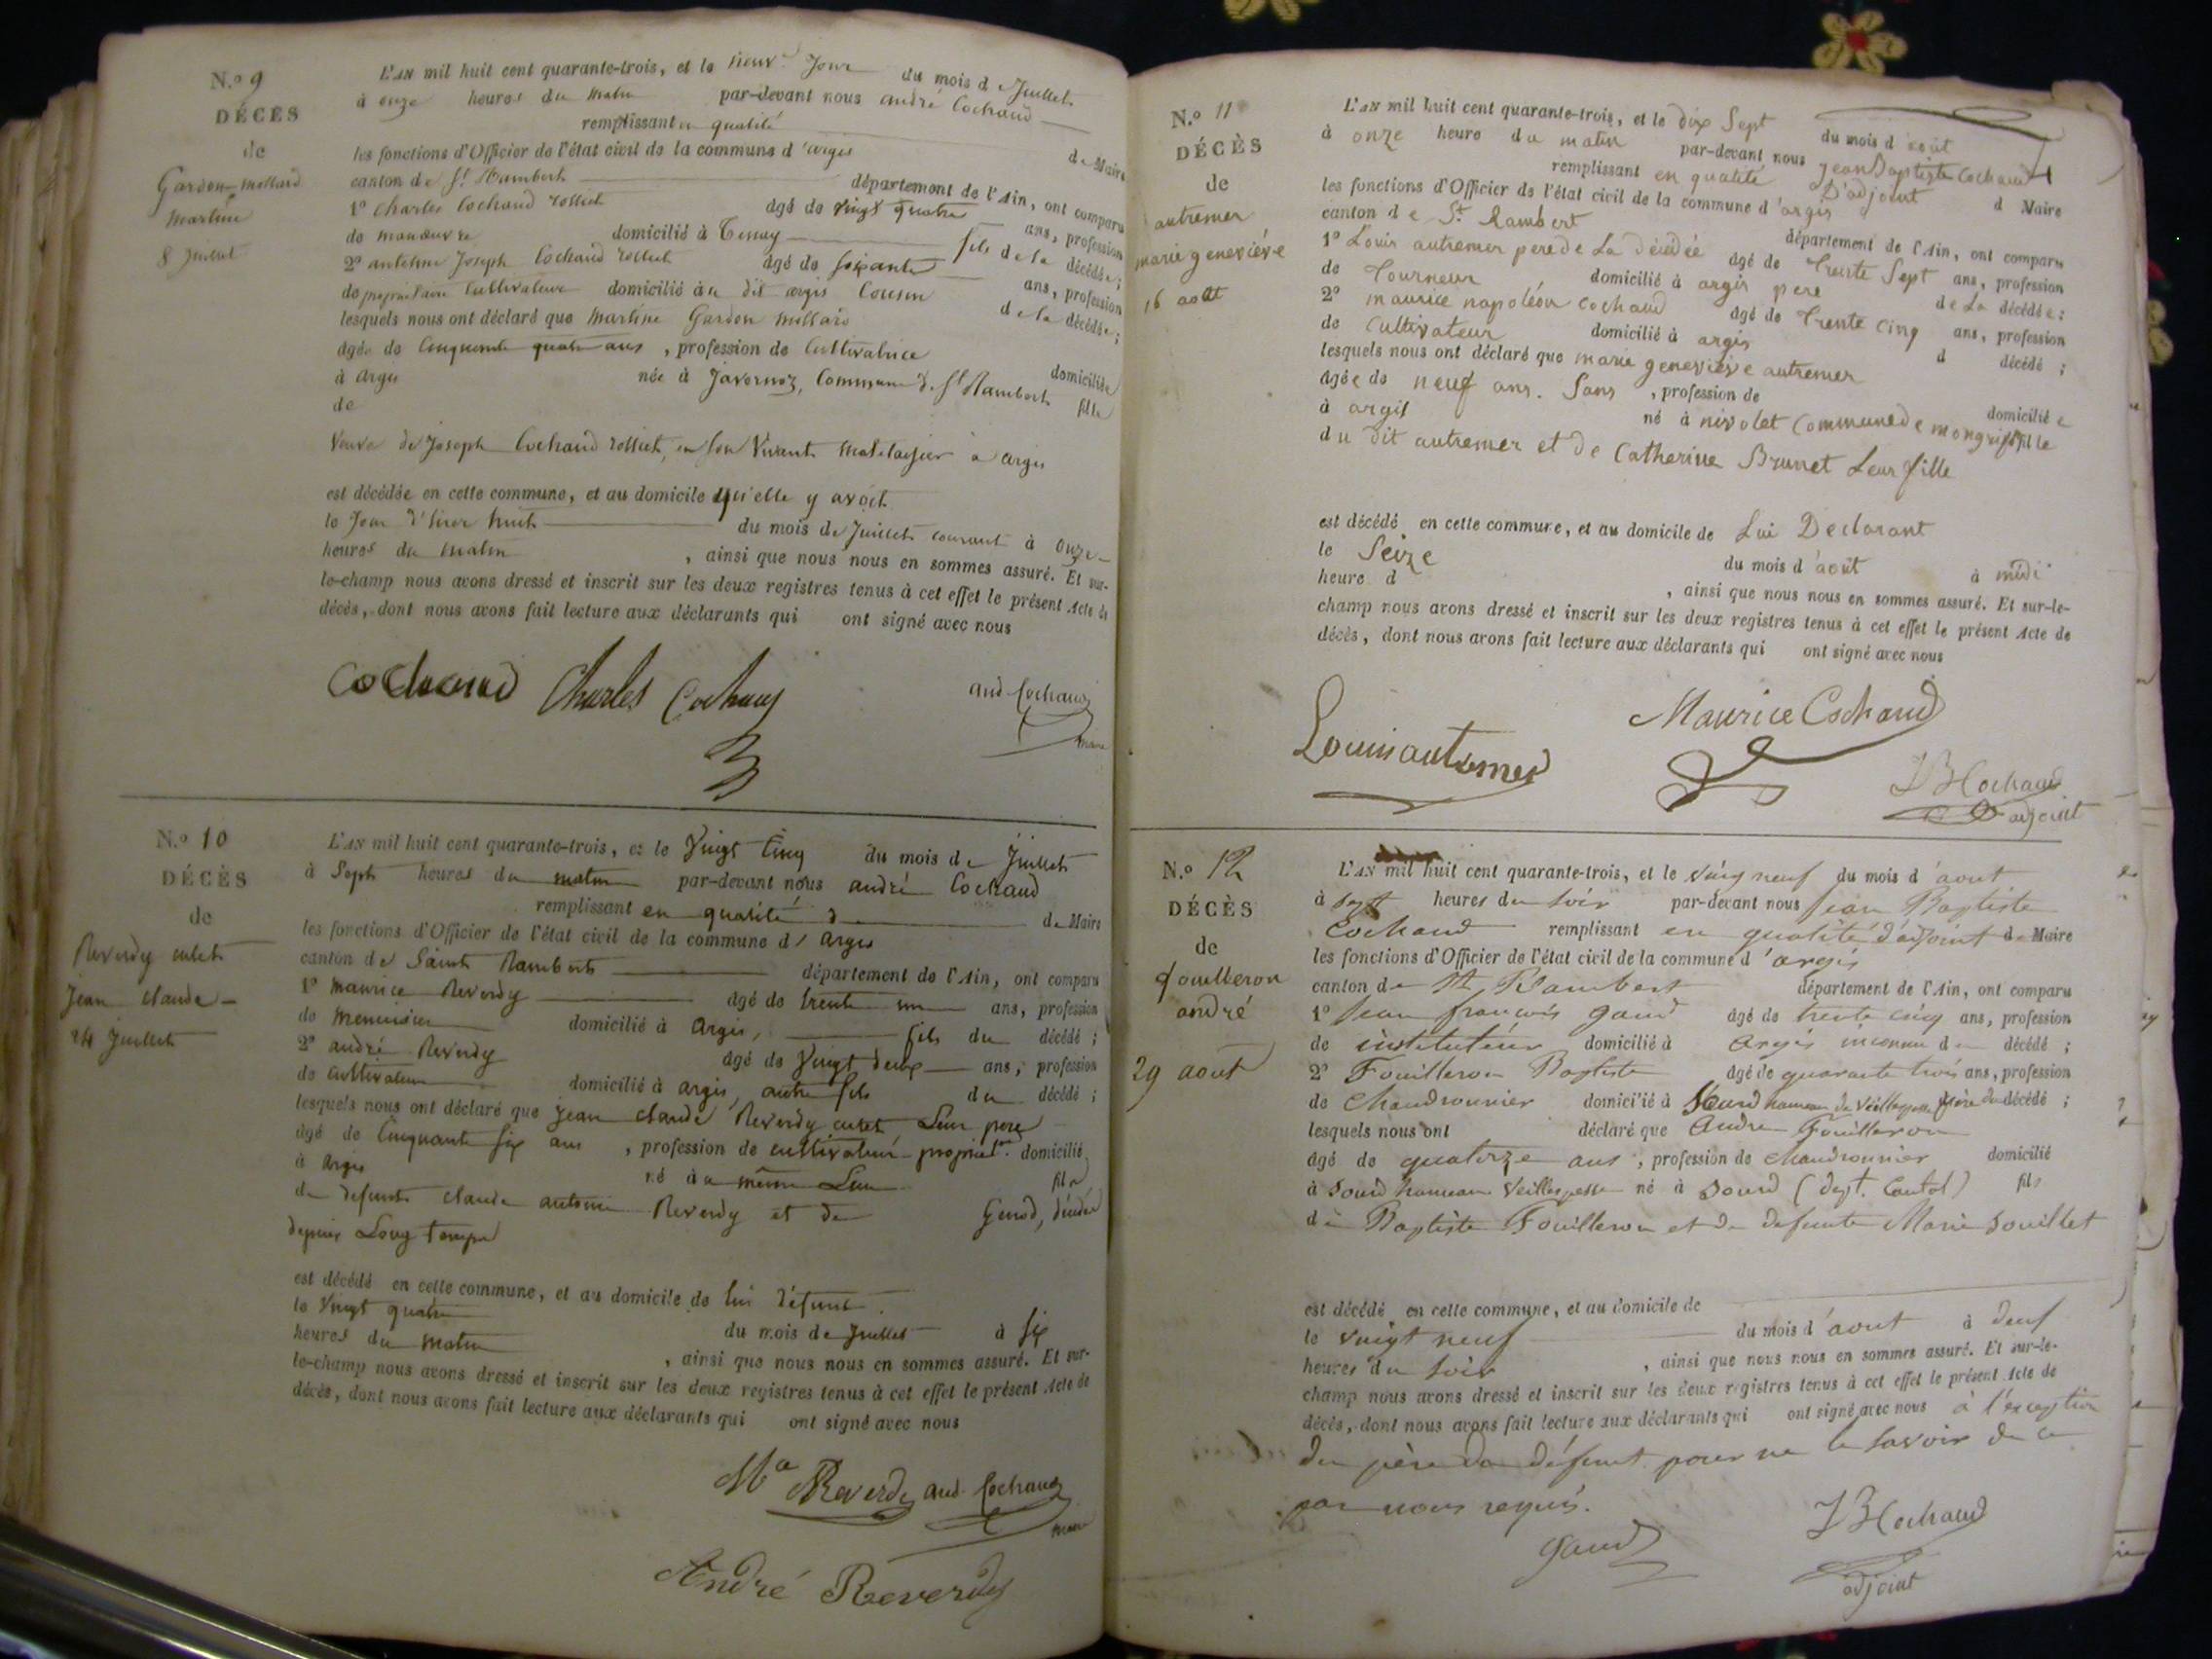 N.º 9
DÉCÈS
de
Gardon-Mollard
Martine
8 Juillet
L'AN mil huit cent quarante-trois, et le neuv.e Jour du mois de Juillet
à onze heures du matin par-devant nous andré Cochaud
remplissant en qualité de Maire
les fonctions d'Officier de l'état civil de la commune d'argis
canton de St. Rambert département de l'Ain, ont comparu
1º Charles Cochaud rolliet âgé de vingt quatre ans, profession
de manœuvre domicilié à Tenay fils de la décédée;
2º antelme Joseph Cochaud rolliet âgé de soixante ans, profession
de propriétaire Cultivateur domicilié au dit argis Cousin de la décédée;
lesquels nous ont déclaré que Martine Gardon Mollard
âgée de Cinquante quatre ans, profession de Cultivatrice domiciliée
à argis née à Javornoz, Commune de St Rambert fille
de
Veuve de Joseph Cochaud rolliet, en son Vivant matelassier à argis
est décédée en cette commune, et au domicile qu'elle y avoit
le Jour d'hier huit du mois de Juillet courant à onze
heures du matin, ainsi que nous nous en sommes assuré. Et sur-
le-champ nous avons dressé et inscrit sur les deux registres tenus à cet effet le présent Acte de
décès, dont nous avons fait lecture aux déclarants qui ont signé avec nous
Cochaud Charles Cochaud and. Cochaud
maire
N.º 10
DÉCÈS
de
Reverdy culet
Jean claude
24 Juillet
L'AN mil huit cent quarante-trois, et le Vingt Cinq du mois de Juillet
à Sept heures du matin par-devant nous andré Cochaud
remplissant en qualité de Maire
les fonctions d'Officier de l'état civil de la commune d'argis
canton de Saint Rambert département de l'Ain, ont comparu
1º maurice Reverdy âgé de trente un ans, profession
de menuisier domicilié à Argis, fils du décédé;
2º andré Reverdy âgé de Vingt deux ans, profession
de cultivateur domicilié à argis, autre fils du décédé;
lesquels nous ont déclaré que Jean claude Reverdy culet Leur pere
âgé de Cinquante six ans, profession de cultivateur propriét.re domicilié
à Argis né au même Lieu fils
de defunts claude antoine Reverdy et de Genod, décédés
depuis Long temps
est décédé en cette commune, et au domicile de lui défunt.
le Vingt quatre du mois de Juillet à six
heures du matin, ainsi que nous nous en sommes assuré. Et sur-
le-champ nous avons dressé et inscrit sur les deux registres tenus à cet effet le présent Acte de
décès, dont nous avons fait lecture aux déclarants qui ont signé avec nous
Ma Reverdy and. Cochaud
maire
André Reverdy
N.º 11
DÉCÈS
de
autremer
marie geneviéve
16 août
L'AN mil huit cent quarante-trois, et le dix Sept du mois d'août
à onze heure du matin par-devant nous Jean Baptiste Cochaud
remplissant en qualité D'adjoint d Maire
les fonctions d'Officier de l'état civil de la commune d'argis
canton de St. Rambert département de l'Ain, ont comparu
1º Louis autremer pere de La décédée âgé de trente Sept ans, profession
de Tourneur domicilié à argis pere de La décédée;
2º maurice napoléon Cochaud âgé de trente cinq ans, profession
de Cultivateur domicilié à argis d décédé;
lesquels nous ont déclaré que marie geneviéve autremer
âgée de neuf ans. Sans, profession de domiciliée
à argis né à nivolet Commune de mongriffon fille
du dit autremer et de Catherine Brunet Leur fille
est décédé en cette commune, et au domicile de Lui Declarant
le Seize du mois d'août à midi
heure d, ainsi que nous nous en sommes assuré. Et sur-le-
champ nous avons dressé et inscrit sur les deux registres tenus à cet effet le présent Acte de
décès, dont nous avons fait lecture aux déclarants qui ont signé avec nous
Louis autremer Maurice Cochaud
JB Cochaud
adjoint
N.º 12
DÉCÈS
de
fouilleron
andré
29 août
L'AN mil huit cent quarante-trois, et le vingt neuf du mois d'aout
à sept heures du soir par-devant nous Jean Baptiste
Cochaud remplissant en qualité d'adjoint de Maire
les fonctions d'Officier de l'état civil de la commune d'argis
canton de St Rambert département de l'Ain, ont comparu
1º Jean françois gaud âgé de trente cinq ans, profession
de instituteur domicilié à Argis inconnu du décédé;
2º Fouilleron Baptiste âgé de quarante trois ans, profession
de chaudronnier domicilié à Sourd hameau de Veillespesse père du décédé;
lesquels nous ont déclaré que André Fouilleron
âgé de quatorze ans, profession de chaudronnier domicilié
à Sourd hameau Veillespesse né à Sourd (dept. Cantal) fils
de Baptiste Fouilleron et de defunte Marie Souillet
est décédé en cette commune, et au domicile de
le vingt neuf du mois d'aout à deux
heures du soir, ainsi que nous nous en sommes assuré. Et sur-le-
champ nous avons dressé et inscrit sur les deux registres tenus à cet effet le présent Acte de
décès, dont nous avons fait lecture aux déclarants qui ont signé avec nous à l'éxception
du père du défunt pour ne le savoir de ce
par nous requis.
gaud JB Cochaud
adjoint